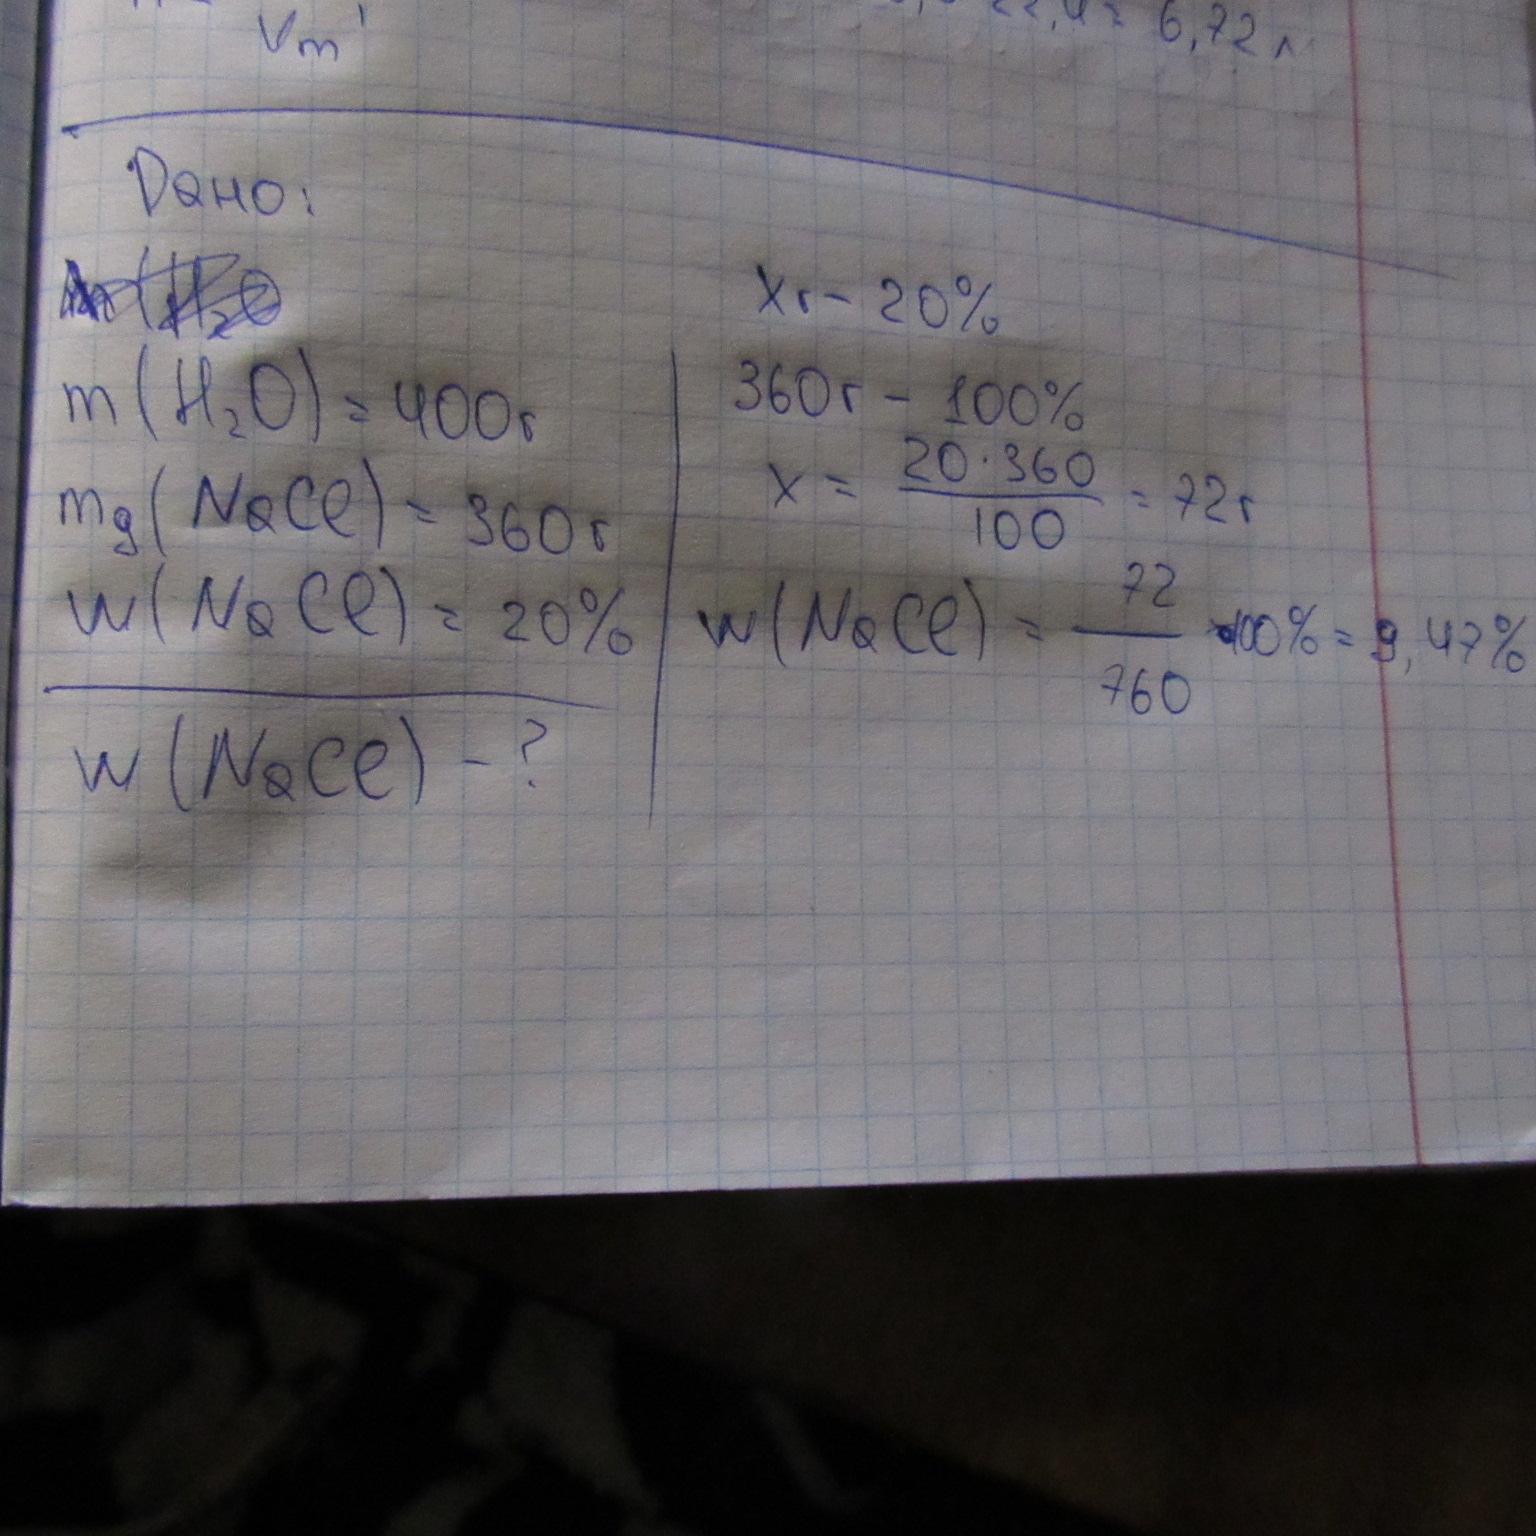 Vm
22,4 = 6,72 л
Дано:
m(H₂O) = 400г
mg(NaCl) = 360г
w(NaCl) = 20%
w(NaCl) - ?
Xг - 20%
360г - 100%
x = 20·360 / 100 = 72г
w(NaCl) = 72 / 760 ·100% = 9,47%